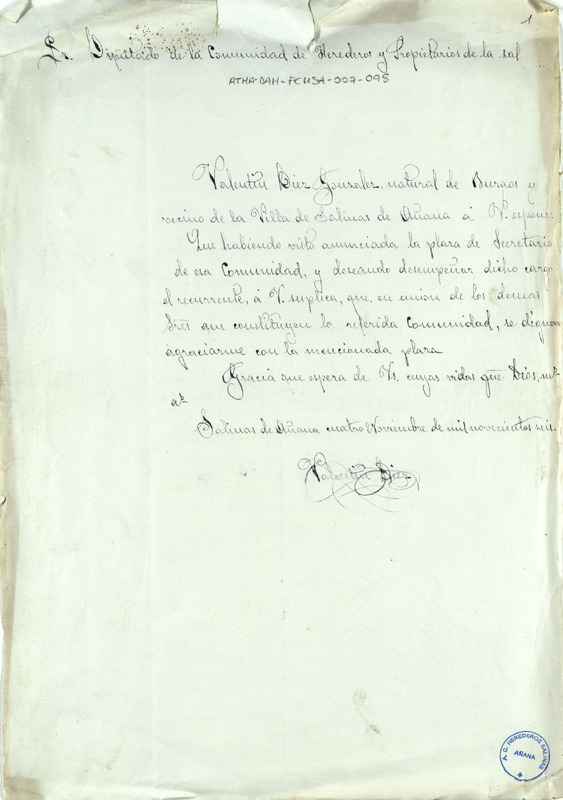 1
Sr. Diputado de la Comunidad de Herederos y Propietarios de la sal
ATHA-DAH-FCHSA-007-098
Valentin Diez Gonzalez, natural de Burgos y
vecino de la Villa de Salinas de Añana á V. expone:
Que habiendo visto anunciada la plaza de Secretario
de esa Comunidad, y deseando desempeñar dicho cargo
el recurrente, á V. suplica, que, en union de los demas
Sres que constituyen la referida Comunidad, se dignen
agraciarme con la mencionada plaza
Gracia que espera de Vs. cuyas vidas gue Dios, ms
as
Salinas de Añana cuatro Noviembre de mil novecientos seis.
Valentin Diez
A. G. HEREDEROS SALINAS
AÑANA